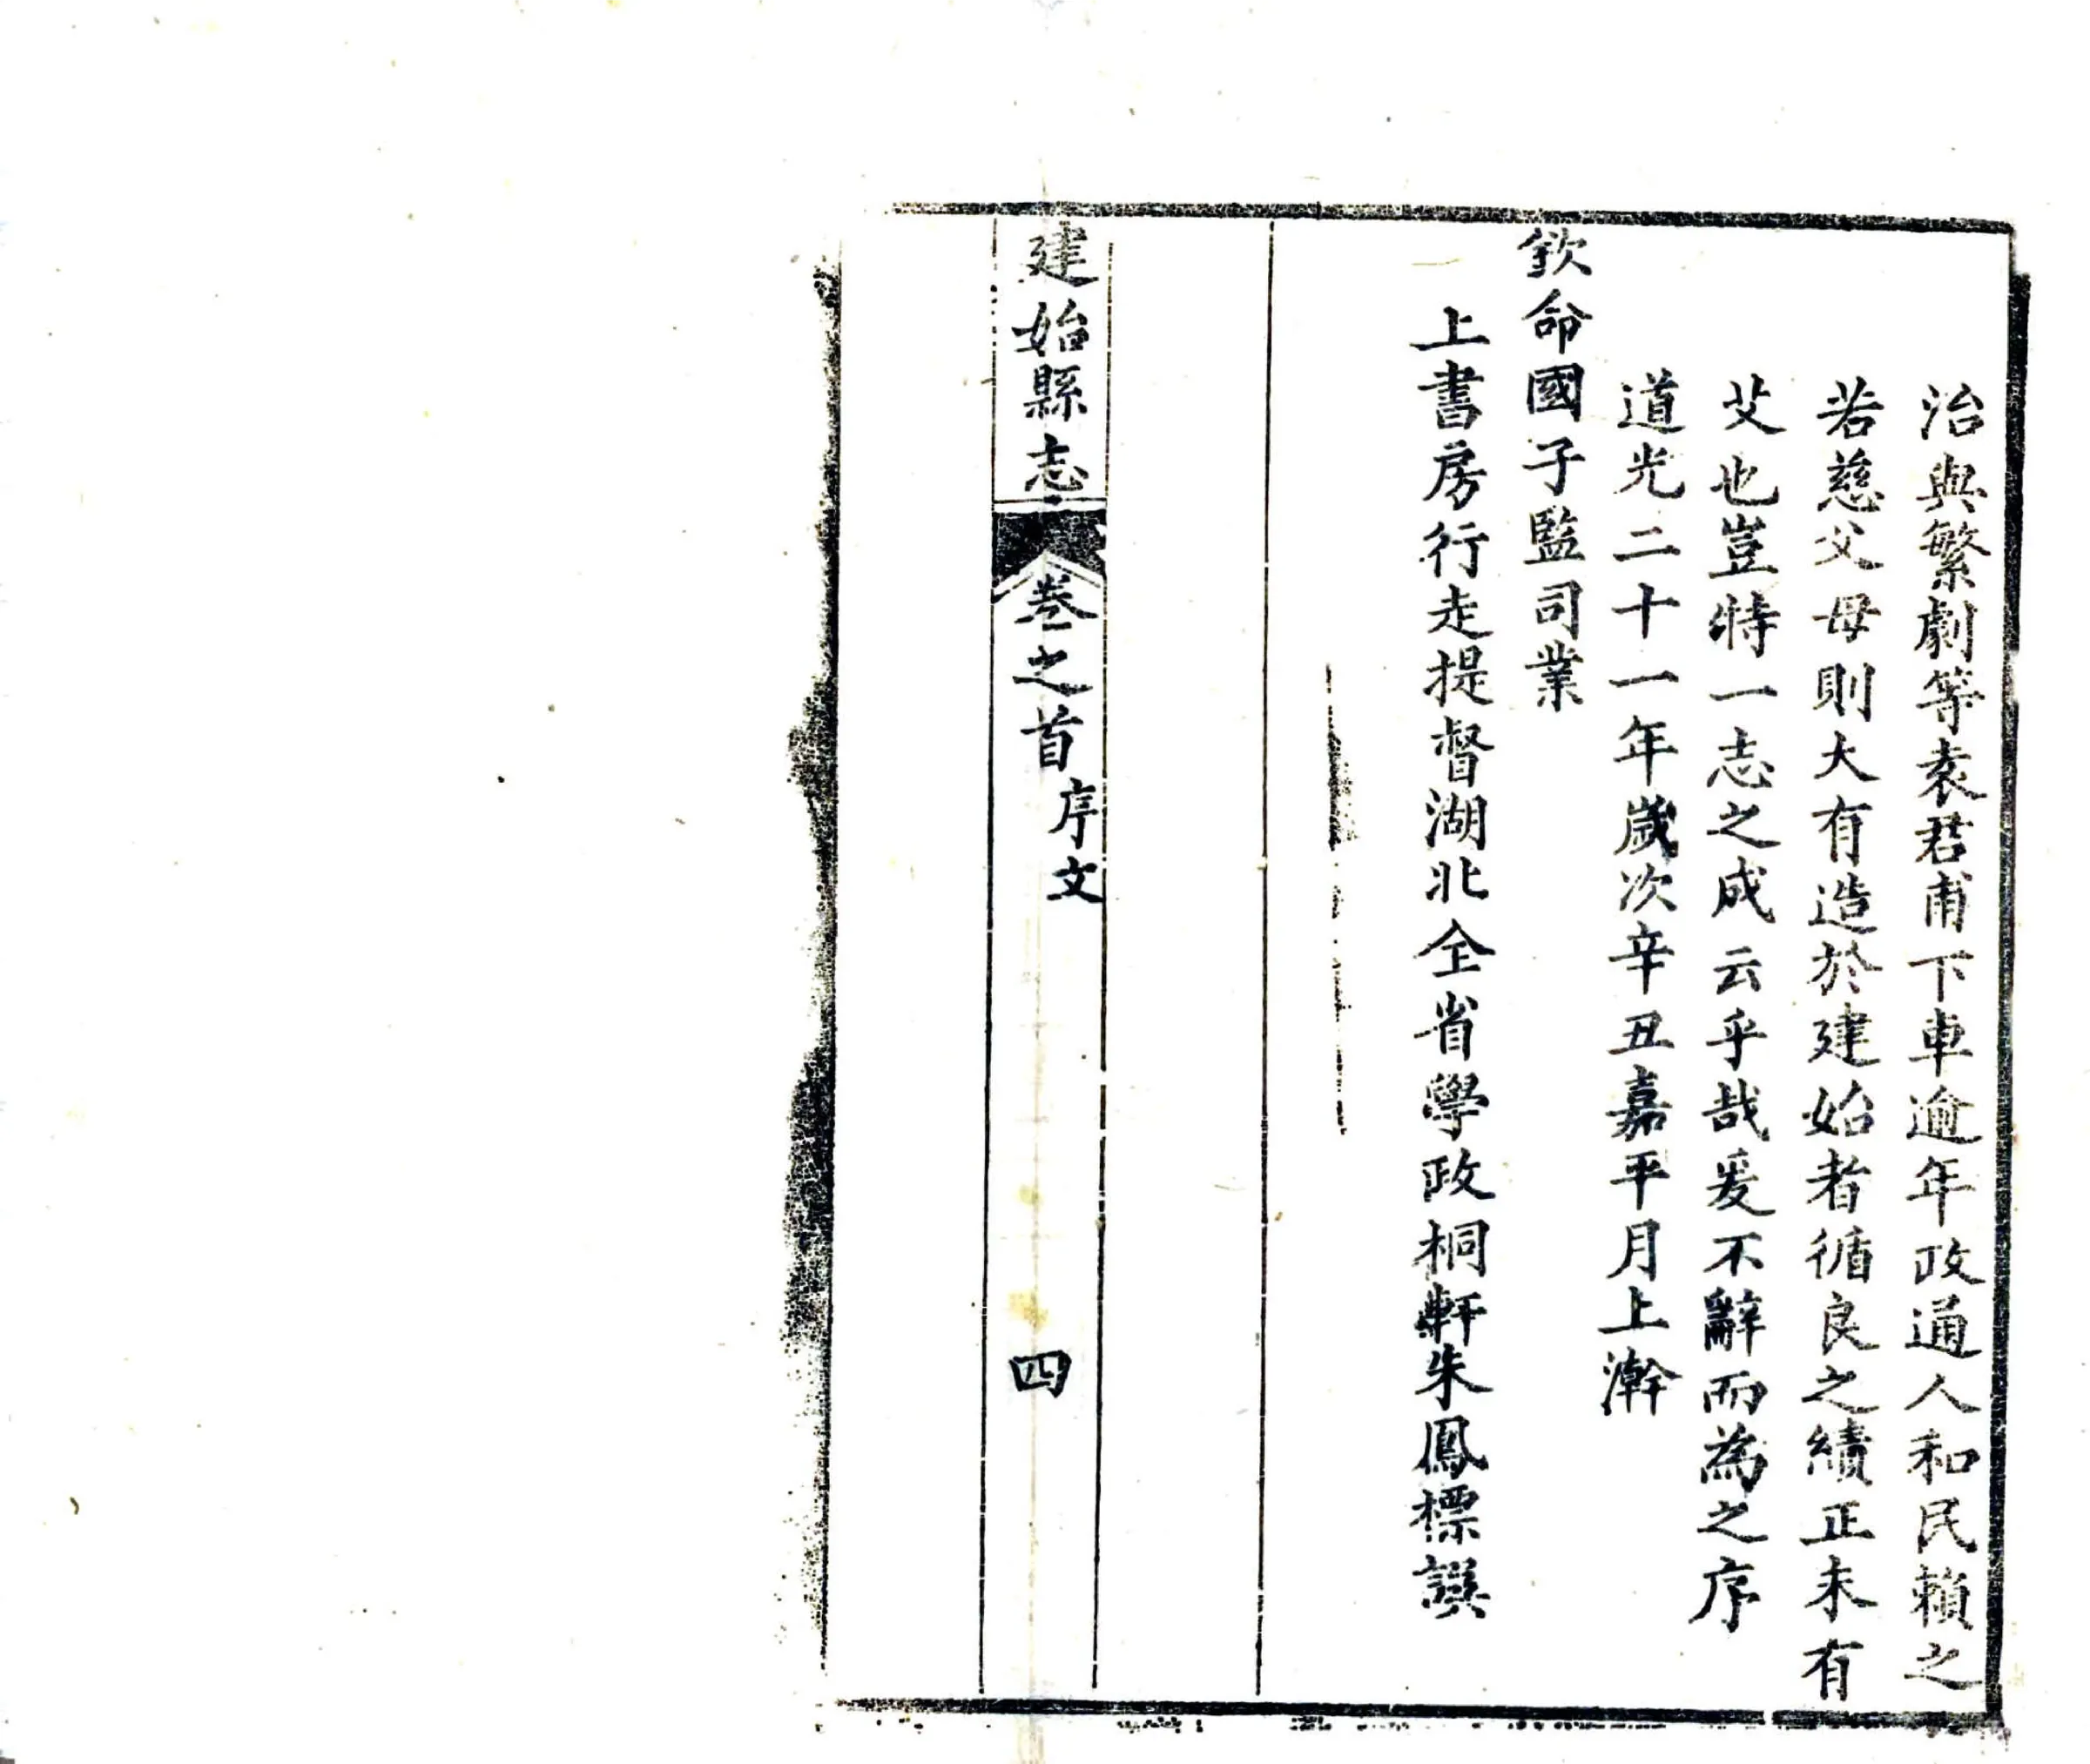 治與繁劇等袁君甫下車逾年政通人和民賴之
若慈父母則大有造於建始者循良之績正未有
艾也豈特一志之成云乎哉爰不辭而為之序
道光二十一年歲次辛丑嘉平月上澣
欽命國子監司業
上書房行走提督湖北全省學政桐軒朱鳳標譔
建始縣志
卷之首
序文
四